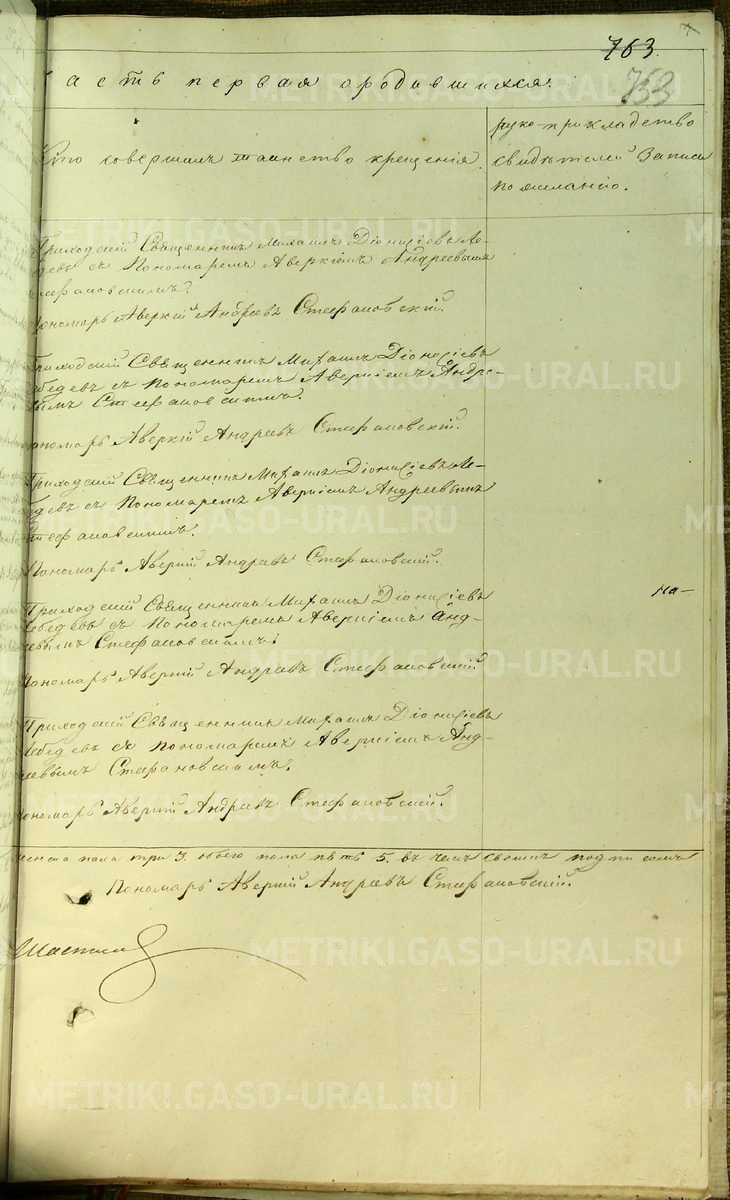 763.
753
часть первая ородившихся.
Кто совершалъ таинство крещенія.
рукоприкладство
свидѣтелей записи
по желанію.
Приходскій Священникъ Михаилъ Діонисіевъ Ле-
бедевъ съ Пономаремъ Аверкіемъ Андреевымъ
Стефановскимъ.
Пономарь Аверкій Андреевъ Стефановскій.
Приходскій Священникъ Михаилъ Діонисіевъ
Лебедевъ съ Пономаремъ Аверкіемъ Андре-
вымъ Стефановскимъ.
Пономарь Аверкій Андреевъ Стефановскій.
Приходскій Священникъ Михаилъ Діонисіевъ Ле-
бедевъ съ Пономаремъ Аверкіемъ Андреевымъ
Стефановскимъ.
Пономарь Аверкій Андреевъ Стефановскій.
Приходскій Священникъ Михаилъ Діонисіевъ
Лебедевъ съ Пономаремъ Аверкіемъ Анд-
реевымъ Стефановскимъ.
Пономарь Аверкій Андреевъ Стефановскій
на-
Приходскій Священникъ Михаилъ Діонисіевъ
Лебедевъ съ Пономаремъ Аверкіемъ Анд-
реевымъ Стефановскимъ.
Пономарь Аверкій Андреевъ Стефановскій.
женска пола три 3. обоего пола пять 5. въ чемъ подписомъ
Пономарь Аверкій Андреевъ Стефановскій.
METRIKI.GASO-URAL.RU